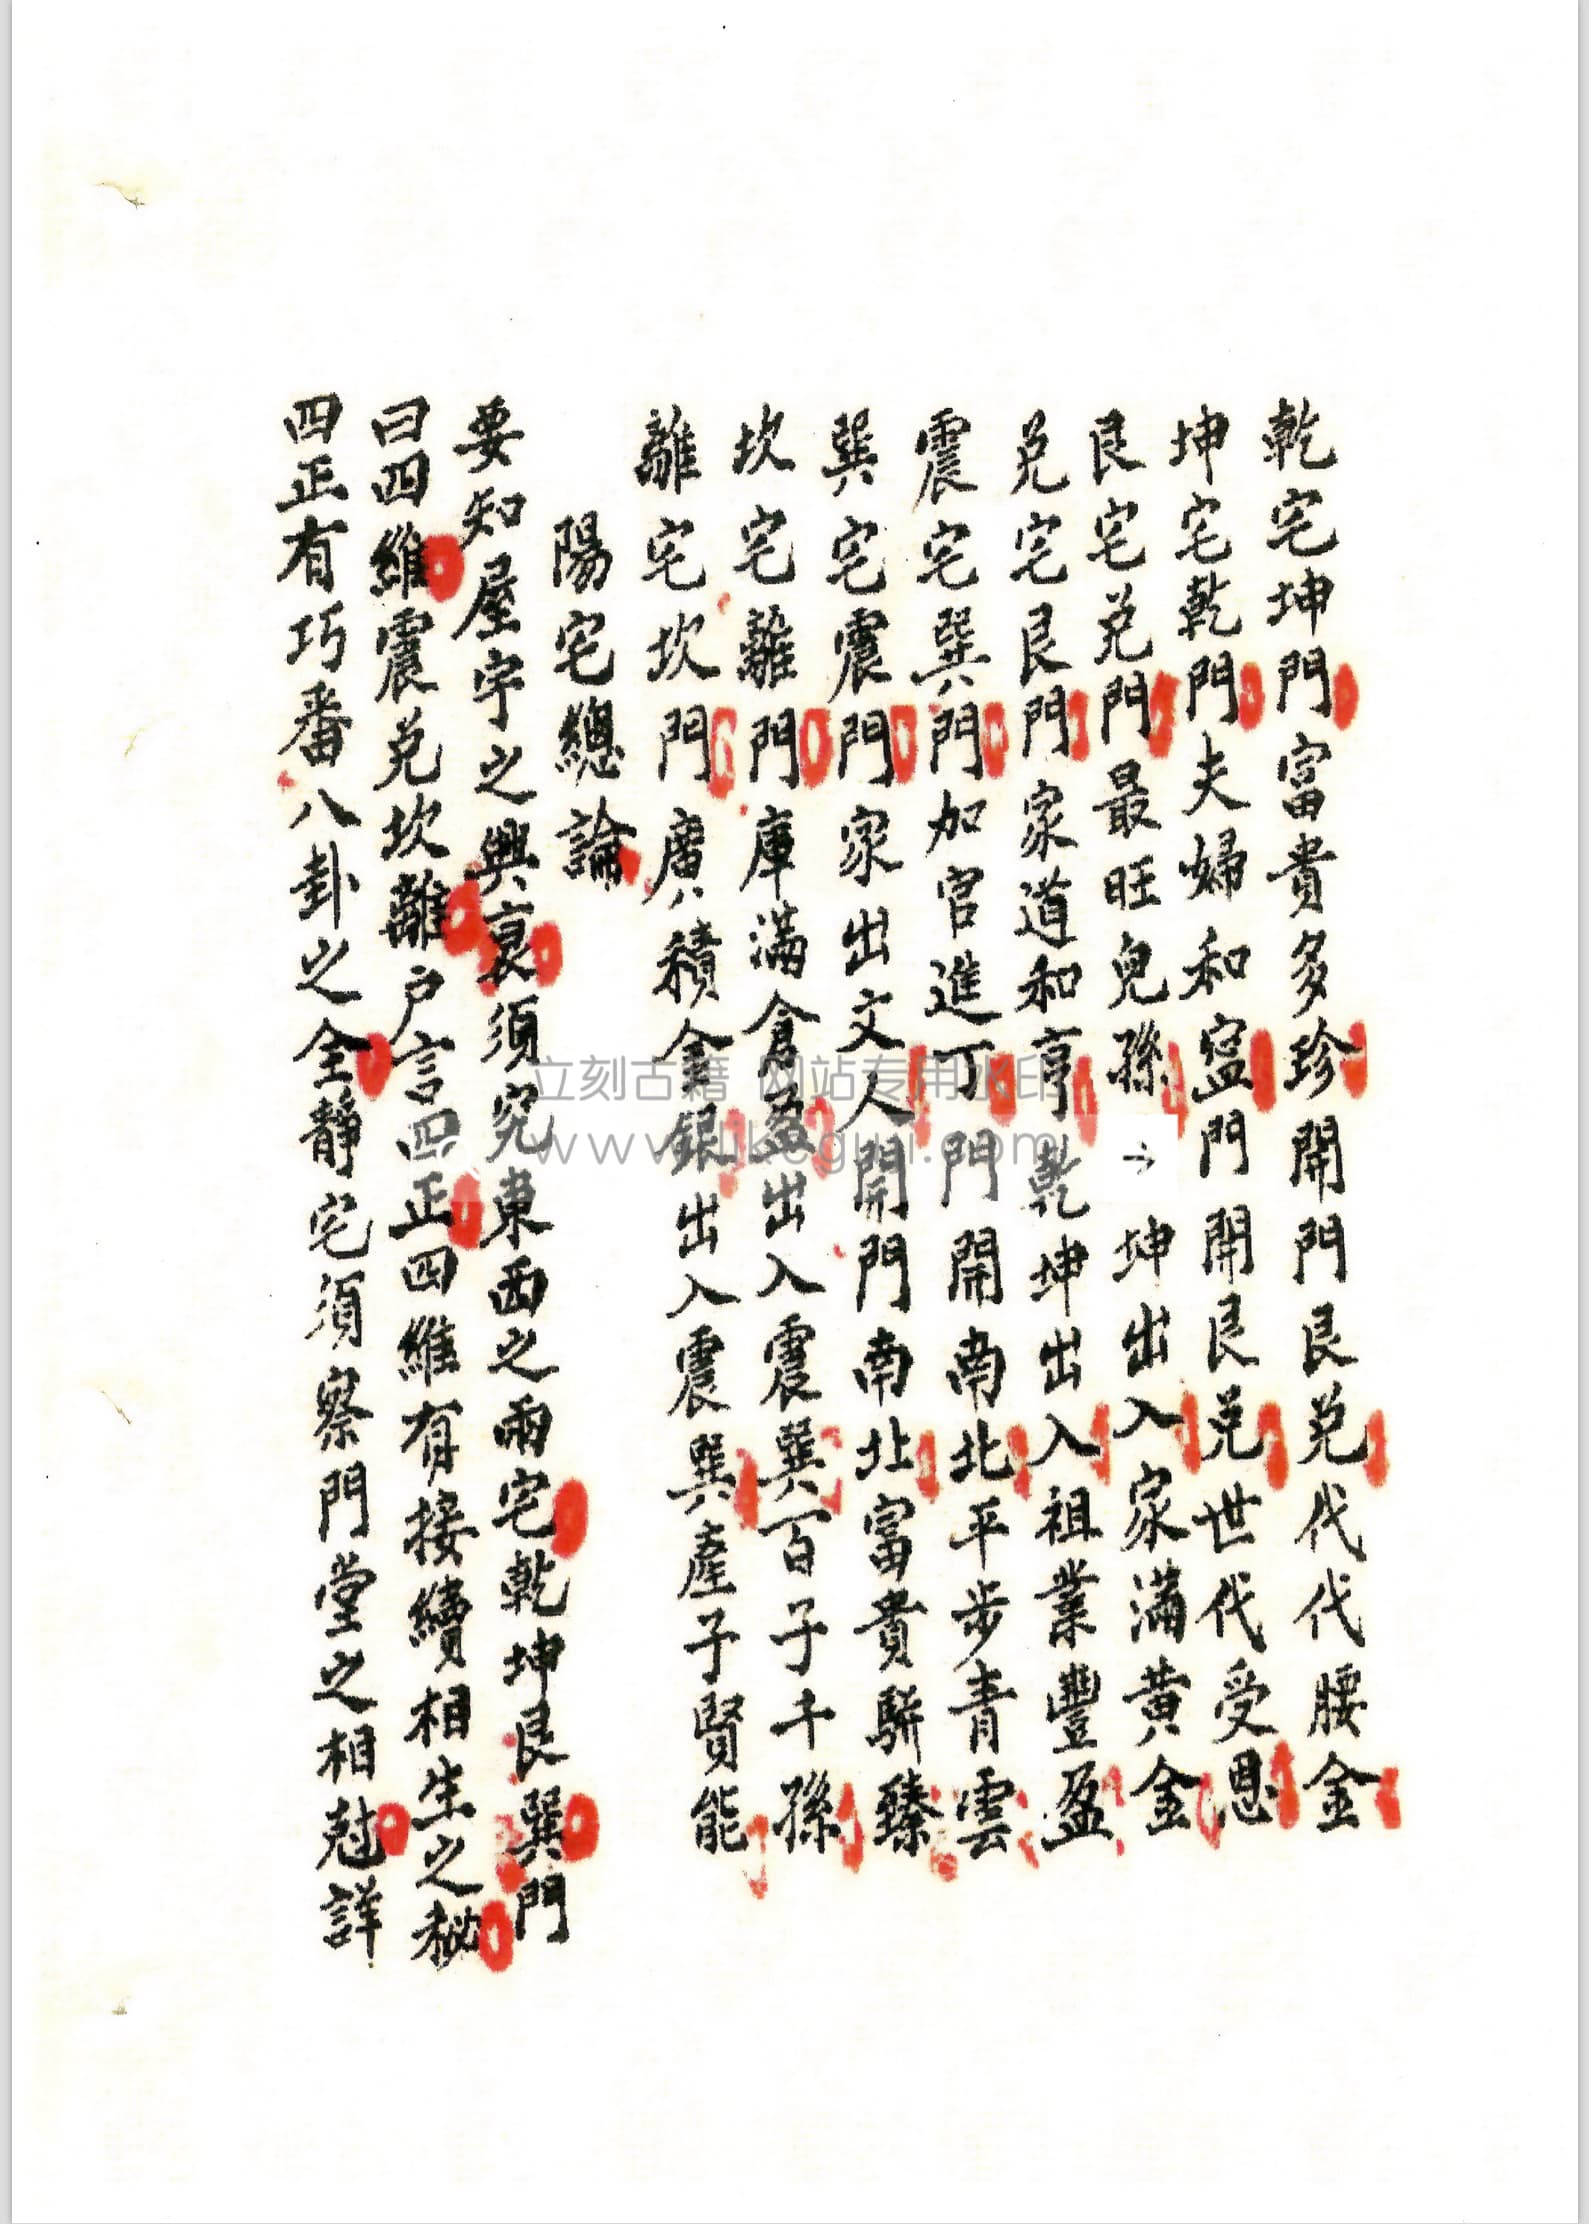 乾宅坤門富貴多珍開門艮兑代代腰金
坤宅乾門夫婦和寍門開艮兑世代受恩
艮宅兑門最旺兒孫坤出入家滿黄金
兑宅艮門家道和亨乾坤出入祖業豐盈
震宅巽門加官進丁門開南北平步青雲
巽宅震門家出文人開門南北富貴駢臻
坎宅離門庫滿倉盈出入震巽百子千孫
離宅坎門廣積金銀出入震巽產子賢能
陽宅總論
要知屋宇之興衰須究東西之兩宅乾坤艮巽門
曰四維震兑坎離户言四正四維有接續相生之秘
四正有巧番八卦之全靜宅須察門堂之相尅詳
立刻古籍 网站专用水印